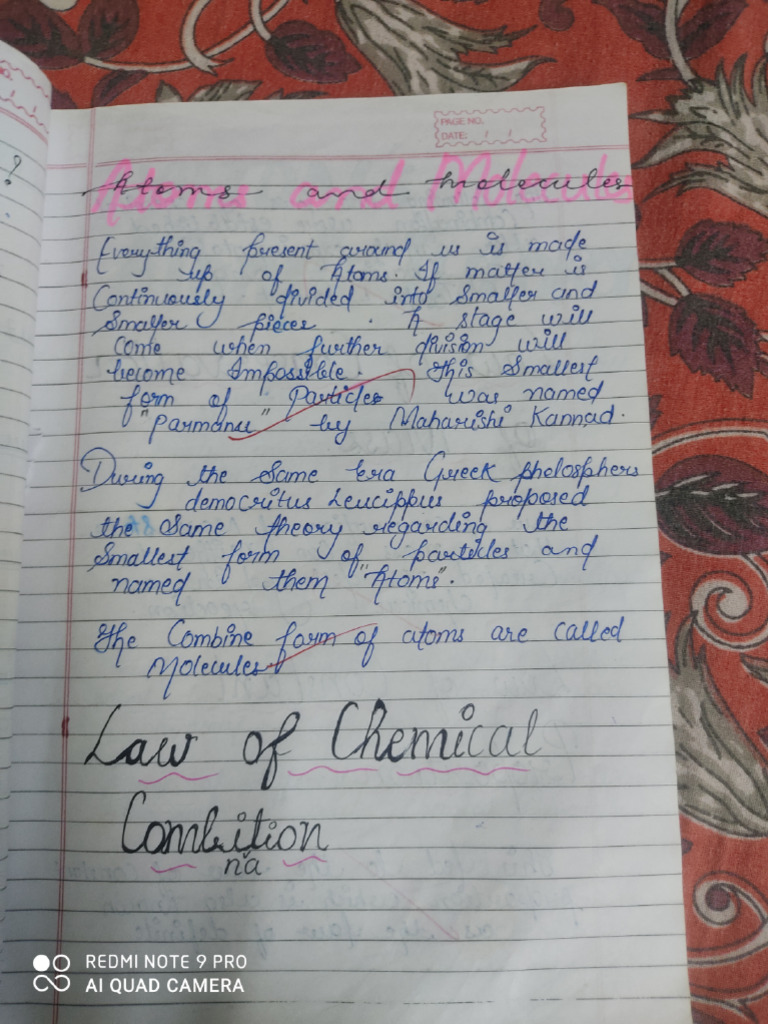 PAGE NO.
DATE: / /
Atoms and Molecules
Everything present around us is made
up of Atoms. If matter is
Continuously divided into Smaller and
Smaller pieces. A stage will
come when further division will
become Impossible. This Smallest
form of Particles was named
"Parmanu" by Maharishi Kannad.
During the Same era Greek pholosphers
democritus Leucippus proposed
the Same theory regarding the
Smallest form of particles and
named them "Atoms".
The Combine form of atoms are called
Molecules
Law of Chemical
Combition
na
REDMI NOTE 9 PRO
AI QUAD CAMERA